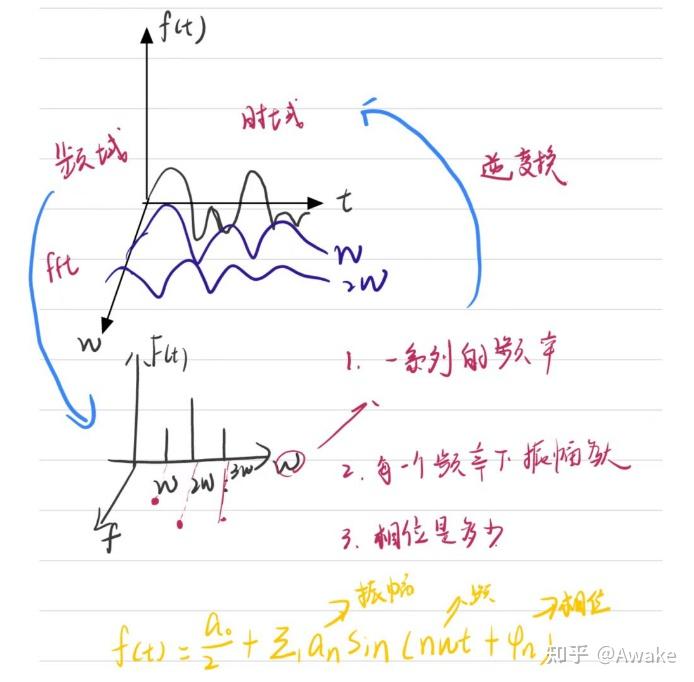 f(t)
时域
频域
逆变换
t
fft
w
2w
w
F(t)
1. 一系列的频率
w 2w 3w w
2. 每一个频率下振幅多大
f
3. 相位是多少
振幅 频 相位
f(t) = a₀/2 + Σ aₙ sin (nwt + φₙ)
知乎 @Awake